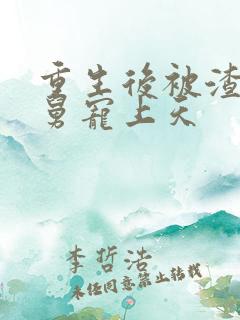 重生後被渣
舅寵上天
李哲浩
未任同意禁止转载